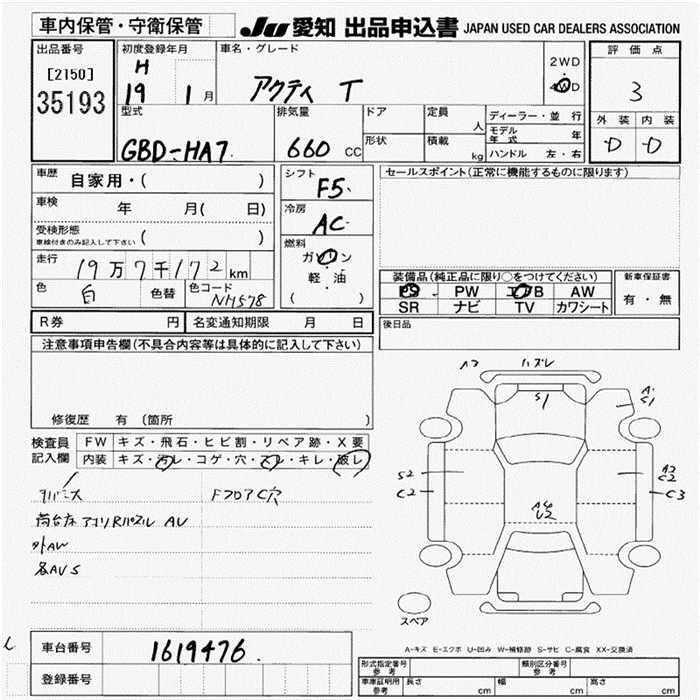 車内保管・守衛保管
JU 愛知 出品申込書 JAPAN USED CAR DEALERS ASSOCIATION
出品番号
[2150]
35193
初度登録年月
H
19 1月
車名・グレード
アクティ T
2WD
4WD
評価点
3
外装 内装
D D
型式
GBD-HA7
排気量
660 CC
ドア
形状
定員 人
積載 kg
ディーラー・並行
モデル年式 年
ハンドル 左・右
車歴 自家用・( )
車検 年 月( 日)
受検形態
車検付きのみ記入して下さい ( )
走行 19万7千172km
色 白 色替 色コード NH578
シフト
F5
冷房
AC
燃料
ガソリン
軽・油
( )
セールスポイント(正常に機能するものに限ります)
装備品(純正品に限り○をつけてください)
PS PW エアB AW
SR ナビ TV カワシート
新車保証書
有・無
後日品
R券 円 名変通知期限 月 日
注意事項申告欄(不具合内容等は具体的に記入して下さい)
修復歴 有 (箇所 )
検査員記入欄
FW キズ・飛石・ヒビ割・リペア跡・X要
内装 キズ・汚レ・コゲ・穴・スレ・キレ・破レ
FフロアC穴
荷台床
AU
外AW
各AUS
A2 ハズレ
S1
A1
S1
S2
C2
A2
C2
C3
A6
U2
スペア
A-キズ E-エクボ U-凹み W-補修跡 S-サビ C-腐食 XX-交換済
車台番号 1619476
登録番号
形式指定番号 参考
類別区分番号 参考
車庫証明用 参考 長さ cm 幅 cm 高さ cm